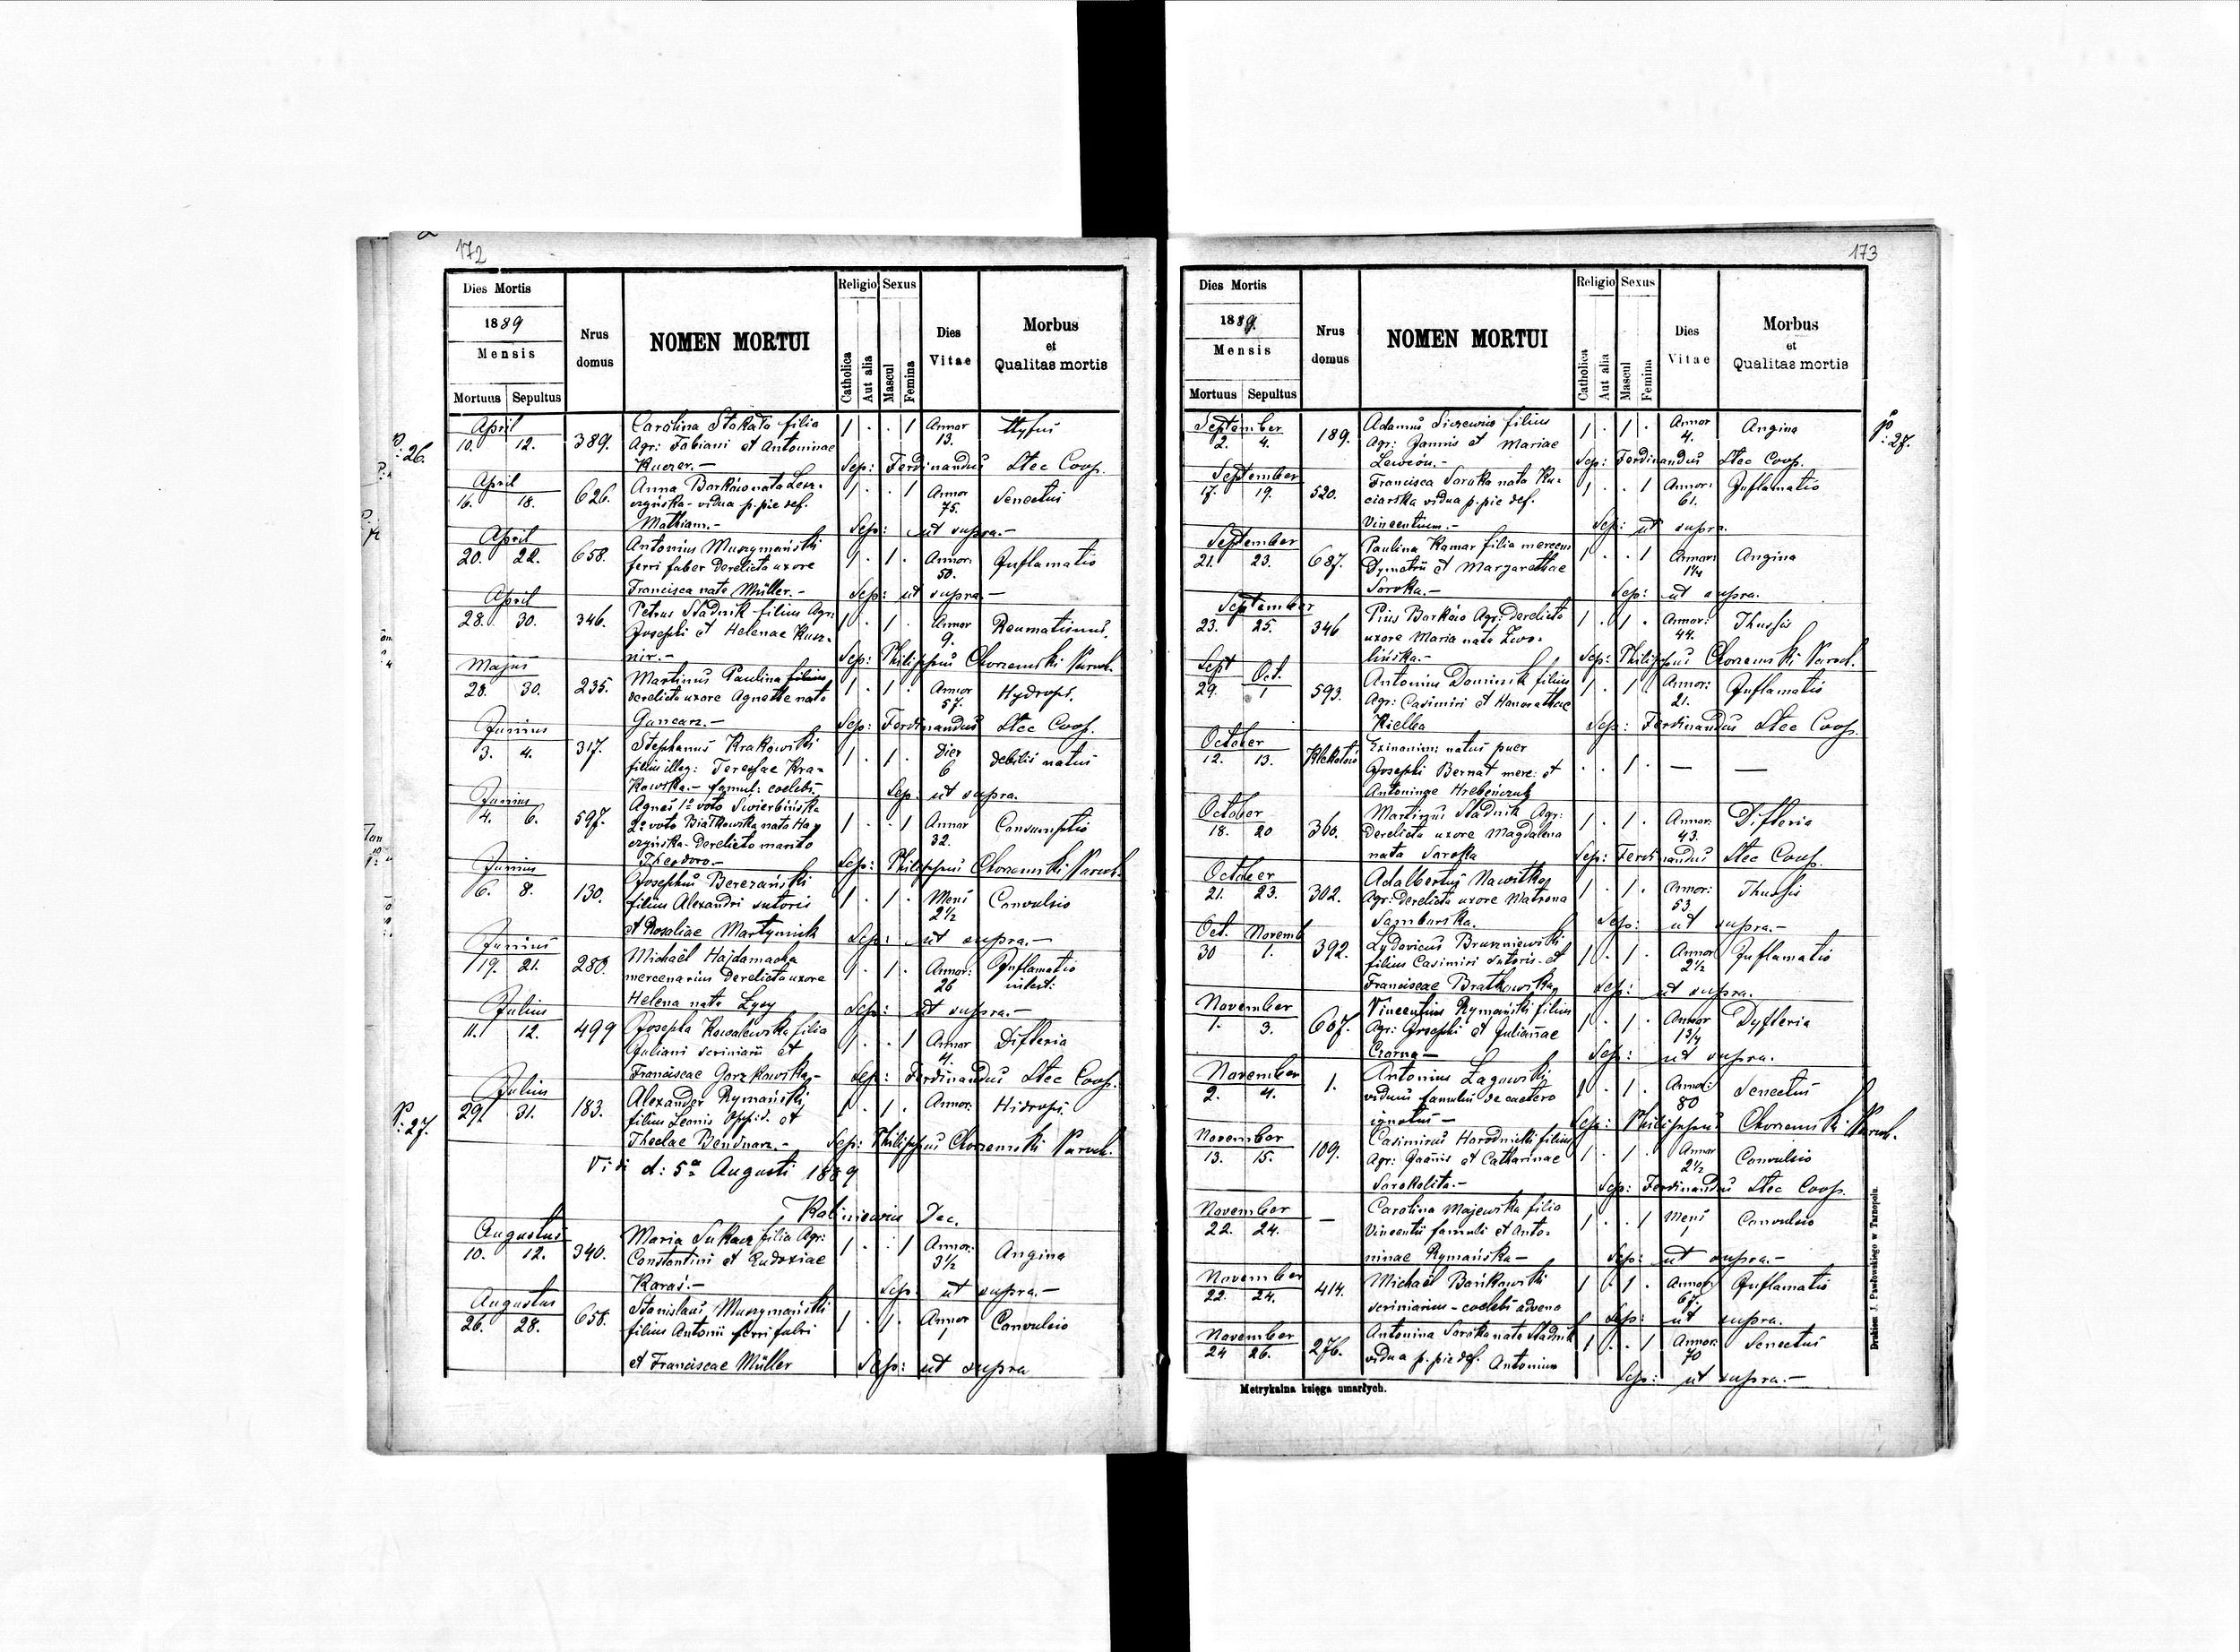 172
Dies Mortis
1889
Mensis
Mortuus Sepultus
Nrus domus
NOMEN MORTUI
Religio Sexus
Catholica
Aut alia
Mascul
Femina
Dies Vitae
Morbus
et
Qualitas mortis
p. 26.
April
10. 12. 389. Carolina Stokało filia 1 . . 1 Annor 13. Tyfus
Agr: Fabiani et Antoninae
Kuczer.- Sep: Ferdinandus Stec Coop.
April
16. 18. 626. Anna Barków nata Lesz- 1 . . 1 Annor 75. Senectus
czyńska - vidua p. pie def.
Mathiam.- Sep: ut supra.-
April
20. 22. 658. Antonius Muszymański 1 . 1 . Annor: 50. Inflamatio
ferri faber derelicta uxore
Francisca nata Müller.- Sep: ut supra.-
April
28. 30. 346. Petrus Stadnik filius Agr: 1 . 1 . Annor 9. Reumatismus.
Josephi et Helenae Kusz-
nir.- Sep: Philippus Chorzemski Paroch.
Majus
28. 30. 235. Martinus Paulina filius 1 . 1 . Annor 57. Hydrops.
derelicta uxore Agnette nata
Gancarz.- Sep: Ferdinandus Stec Coop.
Junius
3. 4. 317. Stephanus Krakowski 1 . 1 . Dier 6 debilis natus
filius illeg: Teresae Kra-
kowska.- famul: coelebs. Sep. ut supra.
Junius
4. 6. 597. Agnes 1o voto Swierbińska 1 . . 1 Annor 32. Consumptio
2o voto Białkowska nata Ha
czyńska - Derelicto marito
Theodoro.- Sep: Philippus Chorzemski Paroch.
Junius
6. 8. 130. Josephus Berezański 1 . 1 . Mens 2½ Convulsio
filius Alexandri sutoris
et Rosaliae Martyniuk Sep: ut supra.-
Junius
19. 21. 280. Michaël Hajdamacha 1 . 1 . Annor: 26 Inflamatio intest:
mercenarius Derelicta uxore
Helena nata Łysy Sep: ut supra.-
Julius
11. 12. 499 Josepha Kowalewska filia 1 . . 1 Annor 4. Difteria
Juliani scriniarii et
Franciscae Gorzkowska.- Sep: Ferdinandus Stec Coop.
p. 27.
Julius
29. 31. 183. Alexander Rymański 1 . 1 . Annor: Hidrops.
filius Leonis Oppid. et
Theclae Bendnarz.- Sep: Philippus Chorzemski Paroch.
Vidi d: 5a Augusti 1889
Kaliniewicz Dec.
Augustus
10. 12. 340. Maria Sukacz filia Agr: 1 . . 1 Annor: 3½ Angina
Constantini et Eudoxiae
Karaś.- Sep. ut supra.-
Augustus
26. 28. 658. Stanislaus Muszymański 1 . 1 . Annor 1 Convulsio
filius Antonii ferri fabri
et Franciscae Müller Sep: ut supra
173
Dies Mortis
1889.
Mensis
Mortuus Sepultus
Nrus domus
NOMEN MORTUI
Religio Sexus
Catholica
Aut alia
Mascul
Femina
Dies Vitae
Morbus
et
Qualitas mortis
p. 27.
September
2. 4. 189. Adamus filius 1 . 1 . Annor 4. Angina
Agr: Joannis et Mariae
Lewców.- Sep: Ferdinandus Stec Coop.
September
17. 19. 520. Francisca Soroka nata Ku- 1 . . 1 Annor: 61. Inflamatio
ciarska vidua p. pie def.
Vincentium.- Sep: ut supra.
September
21. 23. 687. Paulina Kamar filia mercen 1 . . 1 Annor: 1¼ Angina
Dymetrii et Margarethae
Soroka.- Sep: ut supra.
September
23. 25. 346 Pius Barków Agr: Derelicta 1 . 1 . Annor: 44. Thussis
uxore Maria nata Zwo-
lińska.- Sep: Philippus Chorzemski Paroch.
Sept Oct.
29. 1 593. Antonius Dominik filius 1 . 1 Annor: 21. Inflamatio
Agr: Casimiri et Honorathae
Kielba Sep: Ferdinandus Stec Coop.
October
12. 13. Exinanim: natus puer . . 1 . — —
Josephi Bernat merc: et
Antoninae Hrebeńczuk
October
18. 20 360. Martinus Stadnik Agr: 1 . 1 . Annor: 43. Difteria
Derelicta uxore Magdalena
nata Soroka Sep: Ferdinandus Stec Coop.
October
21. 23. 302. Adalbertus Nawitka 1 . 1 . Annor: 53 Thussis
Agr: Derelicta uxore Matrona
Samburska. Sep: ut supra.-
Oct. Novemb
30 1. 392. Ludovicus Bruszniewski 1 . 1 . Annor 2½ Inflamatio
filius Casimiri sutoris - et
Franciscae Bratkowska Sep: ut supra.
November
1. 3. 607. Vincentius Rymański filius 1 . 1 . Annor 1¾ Dyfteria
Agr: Josephi et Julianae
Czarna — Sep: ut supra.
November
2. 4. 1. Antonius Łagowski 1 . 1 . Annor: 80 Senectus
viduus famulus de caetero
ignotus — Sep: Philippus Chorzemski Paroch.
November
13. 15. 109. Casimirus Horodnicki filius 1 . 1 . Annor 2½ Convulsio
Agr: Joannis et Catharinae
Sorokolita.- Sep: Ferdinandus Stec Coop.
November
22. 24. — Carolina Majewska filia 1 . . 1 Mens 1 Convulsio
Vincentii famuli et Anto-
ninae Rymańska — Sep: ut supra.-
November
22. 24. 414. Michaël Bańkowski 1 . 1 . Annor 67. Inflamatio
scriniarius - coelebs advena Sep: ut supra.
November
24 26. 276. Antonina Soroka nata Stadnik 1 . . 1 Annor: 70 Senectus
vidua p. pie def. Antonium
Sep: ut supra.-
Metrykalna księga umarłych.
Drukiem J. Pawłowskiego w Tarnopolu.